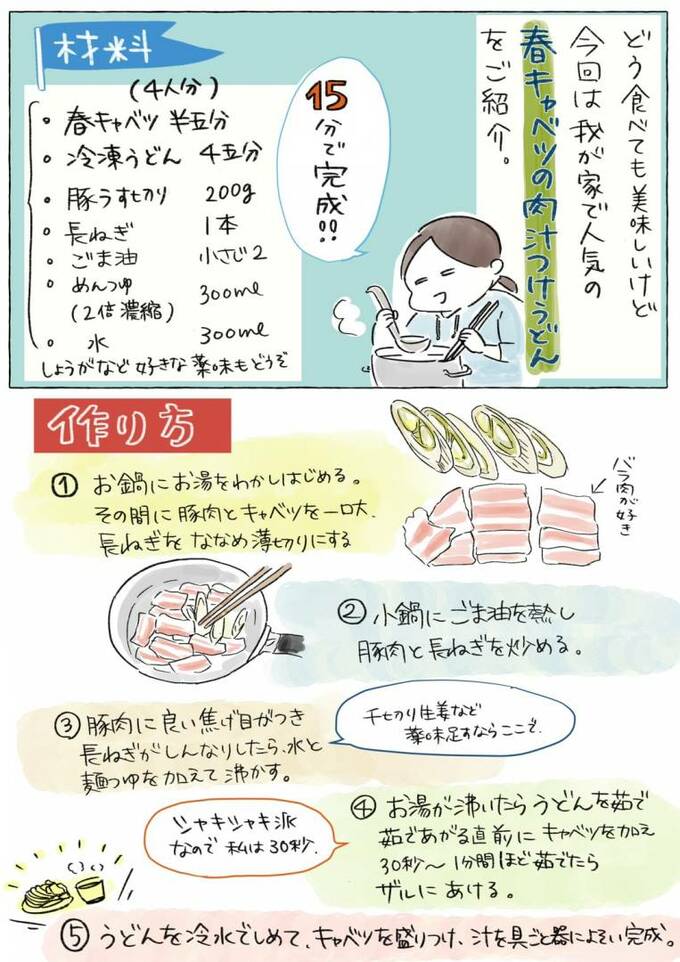 どう食べても美味しいけど
今回は我が家で人気の
春キャベツの肉汁つけうどん
をご紹介。
15分で完成!!
材料
(4人分)
・春キャベツ 半玉分
・冷凍うどん 4玉分
・豚うす切り 200g
・長ねぎ 1本
・ごま油 小さじ2
・めんつゆ 300ml
(2倍濃縮)
・水 300ml
しょうがなど好きな薬味もどうぞ
作り方
① お鍋にお湯をわかしはじめる。
その間に豚肉とキャベツを一口大、
長ねぎをななめ薄切りにする
バラ肉が好き
② 小鍋にごま油を熱し
豚肉と長ねぎを炒める。
③ 豚肉に良い焦げ目がつき
長ねぎがしんなりしたら、水と
麺つゆを加えて沸かす。
千切り生姜など
薬味足すならここで。
④ お湯が沸いたらうどんを茹で
茹であがる直前にキャベツを加え
30秒〜1分間ほど茹でたら
ザルにあける。
シャキシャキ派
なので私は30秒。
⑤ うどんを冷水でしめて、キャベツを盛りつけ、汁を具ごと器によそい完成。